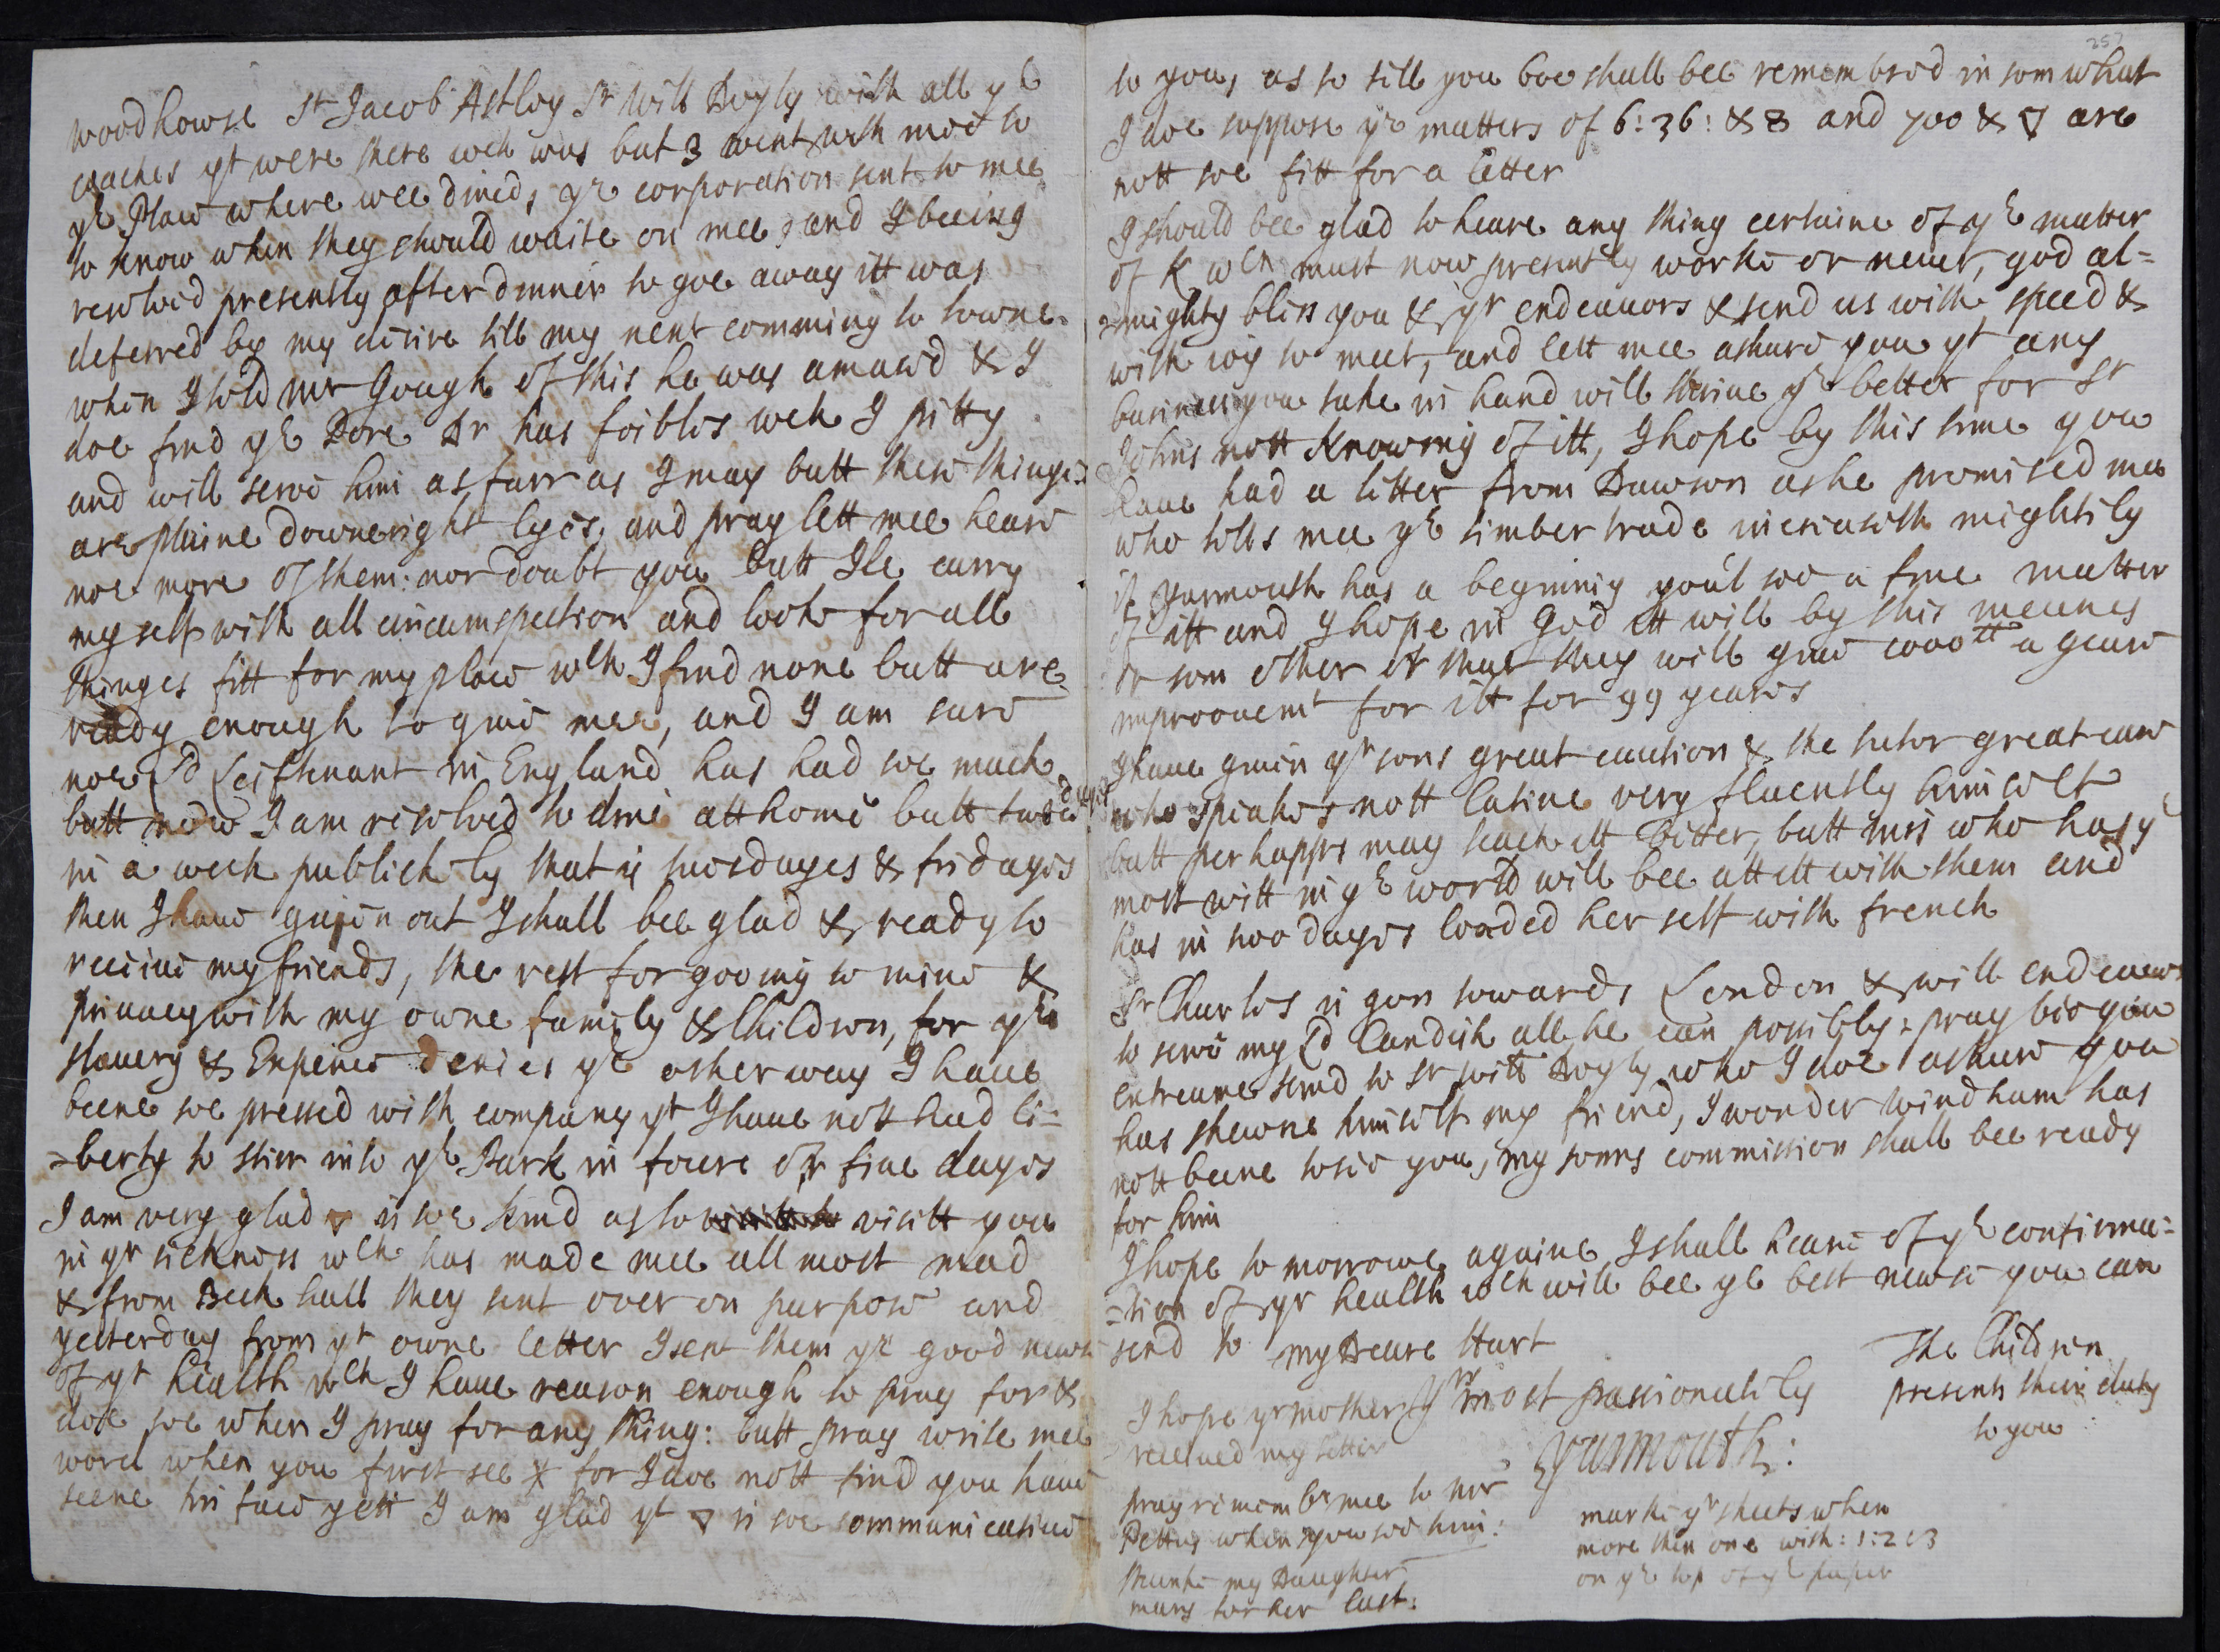 woodhowse Sr Jacob Astley Sr Will Doyly with all ye
coaches yt were there wch was but 3 went with mee to
ye Place where wee dined, ye corporation sent to mee
to know when they should waite on mee, and I beeing
resolved presently after dinner to goe away itt was
deferred by my desire till my next comming to towne.
when I told mr Gough of this he was amased & I
doe find ye Dore Dr has foibles wch I pitty
and will serve him as farr as I may butt these things
are plaine downeright lyes, and pray lett mee heare
noe more of them: nor doubt you butt Ile carry
my self with all circumspection and looke for all
thinges fitt for my place wch I find none butt are
ready enough to give mee, and I am sure
noe Ld Leiftenant in England has had soe much
butt now I am resolved to dine att home butt two dayes
in a week publickly that is tuesdayes & fridayes
then I have given out I shall bee glad & ready to
receive my friends, the rest for gooing to mine &
privacy with my owne family & Children, for ye
slavery & Expence denies ye other way I have
beene soe pressed with company yt I have nott had li=
=berty to stirr into ye Park in foure or five dayes
I am very glad ▽ is soe kind as to visitt you
in yr sickness wch has made mee allmost mad
& from Beck hall they sent over on purpose and
yesterday from yr owne letter I sent them ye good newse
of yr health wch I have reason enough to pray for &
doe soe when I pray for any thing: butt pray write mee
word when you first see X for I doe nott find you have
seene his face yett I am glad yt ▽ is soe communicative
257
to you, as to tell you wee shall bee remembred in som what
I doe suppose ye matters of 6: 36: & 8 and 700 & ▽ are
nott soe fitt for a letter
I should bee glad to heare any thing certaine of ye matter
of K wch must now presently worke or never, god al=
=mighty bliss you & yr endeavors & send us with speed &
with joy to meet, and lett mee ashure you yt any
business you take in hand will thrive ye better for Sr
Johns nott knowing of itt, I hope by this time you
have had a letter from Dawson as he promised mee
who tells mee ye timber trade increaseth mightily
if yarmouth has a begining you'l see a fine matter
of itt and I hope in God itt will by this meanes
or som other that they will give 1000tt a yeare
improovemt for itt for 99 yeares
I have given yr sons great caution & the tutor great care
who speakes nott latine very fluently himselt
butt perhapps may teach itt better, butt mrs who has ye
most witt in ye world will bee att itt with them and
has in too dayes loaded her self with french
Sr Charles is gon towards London & will endeavor
to serve my Ld Candish all he can possibly, pray bee you
extreame kind to Sr Will Doyly who I doe ashure you
has shewne himselt my friend, I wonder windham has
nott beene to see you, my sonns commission shall bee ready
for him
I hope to morrowe againe I shall heare of ye confirma=
=tion of yr health wch will bee ye best newse you can
send to my Deare Hart
yr most passionately
Yarmouth:
The Children
presents their duty
to you
I hope yr mother
received my letter
pray remember mee to mr
Pettus when you see him:
thanke my Daughter
mary for her last:
marke yr sheets when
more then one with: 1: 2: 3
on ye top of ye paper